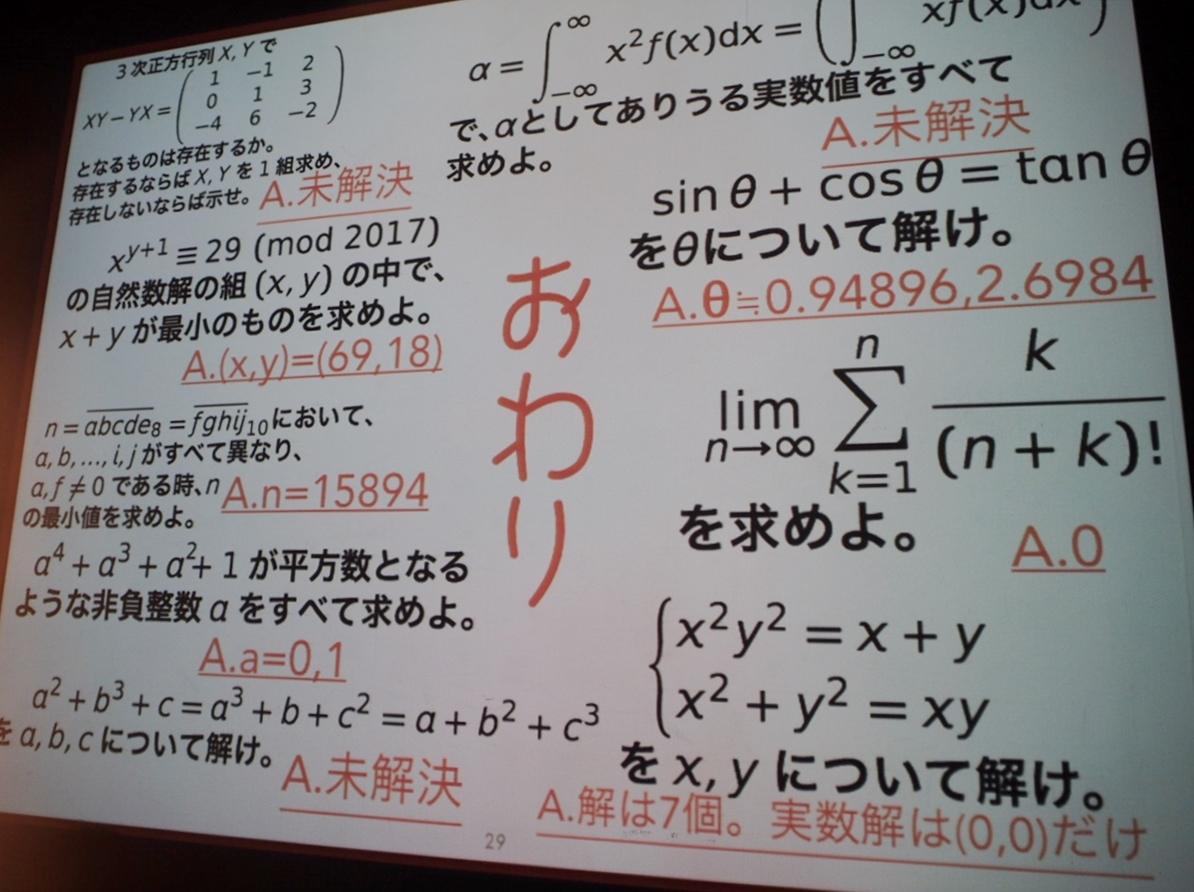 3次正方行列X, Yで
XY−YX=(1 −1 2
0 1 3
−4 6 −2)
となるものは存在するか。
存在するならばX, Yを1組求め、
存在しないならば示せ。
A.未解決
x^{y+1} ≡ 29 (mod 2017)
の自然数解の組(x, y)の中で、
x+yが最小のものを求めよ。
A.(x,y)=(69,18)
n=\overline{abcde}_8=\overline{fghij}_{10}において、
a,b,...,i,jがすべて異なり、
a,f≠0である時、n
の最小値を求めよ。
A.n=15894
a⁴+a³+a²+1が平方数となる
ような非負整数aをすべて求めよ。
A.a=0,1
a²+b³+c=a³+b+c²=a+b²+c³
をa,b,cについて解け。
A.未解決
おわり
α=∫_{−∞}^{∞} x²f(x)dx=(∫_{−∞} xf(x)dx)
で、αとしてありうる実数値をすべて
求めよ。
A.未解決
sinθ+cosθ=tanθ
をθについて解け。
A.θ≒0.94896,2.6984
lim_{n→∞} Σ_{k=1}^{n} k/(n+k)!
を求めよ。
A.0
{x²y²=x+y
x²+y²=xy
をx,yについて解け。
A.解は7個。実数解は(0,0)だけ
29